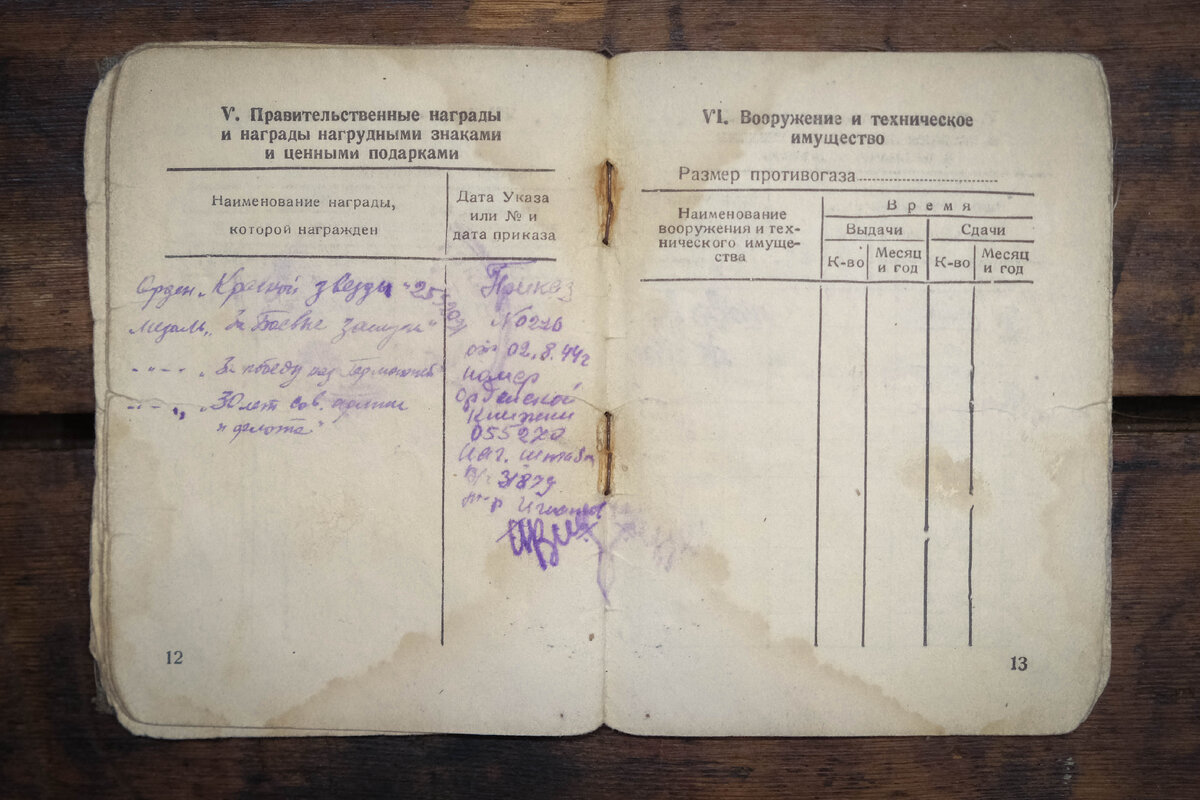 V. Правительственные награды
и награды нагрудными знаками
и ценными подарками
Наименование награды,
которой награжден
Дата Указа
или № и
дата приказа
Орден „Красной звезды"
Медаль „За Боевые Заслуги"
-"-"- „За победу над Германией"
-"-"- „30 лет сов. армии
и флота"
Приказ
№ 0276
от 02.8.44г
номер
Орденской
Книжки
055270
Нач. штаба
31879
12
VI. Вооружение и техническое
имущество
Размер противогаза
Наименование
вооружения и тех-
нического имуще-
ства
Время
Выдачи
Сдачи
К-во
Месяц
и год
К-во
Месяц
и год
13